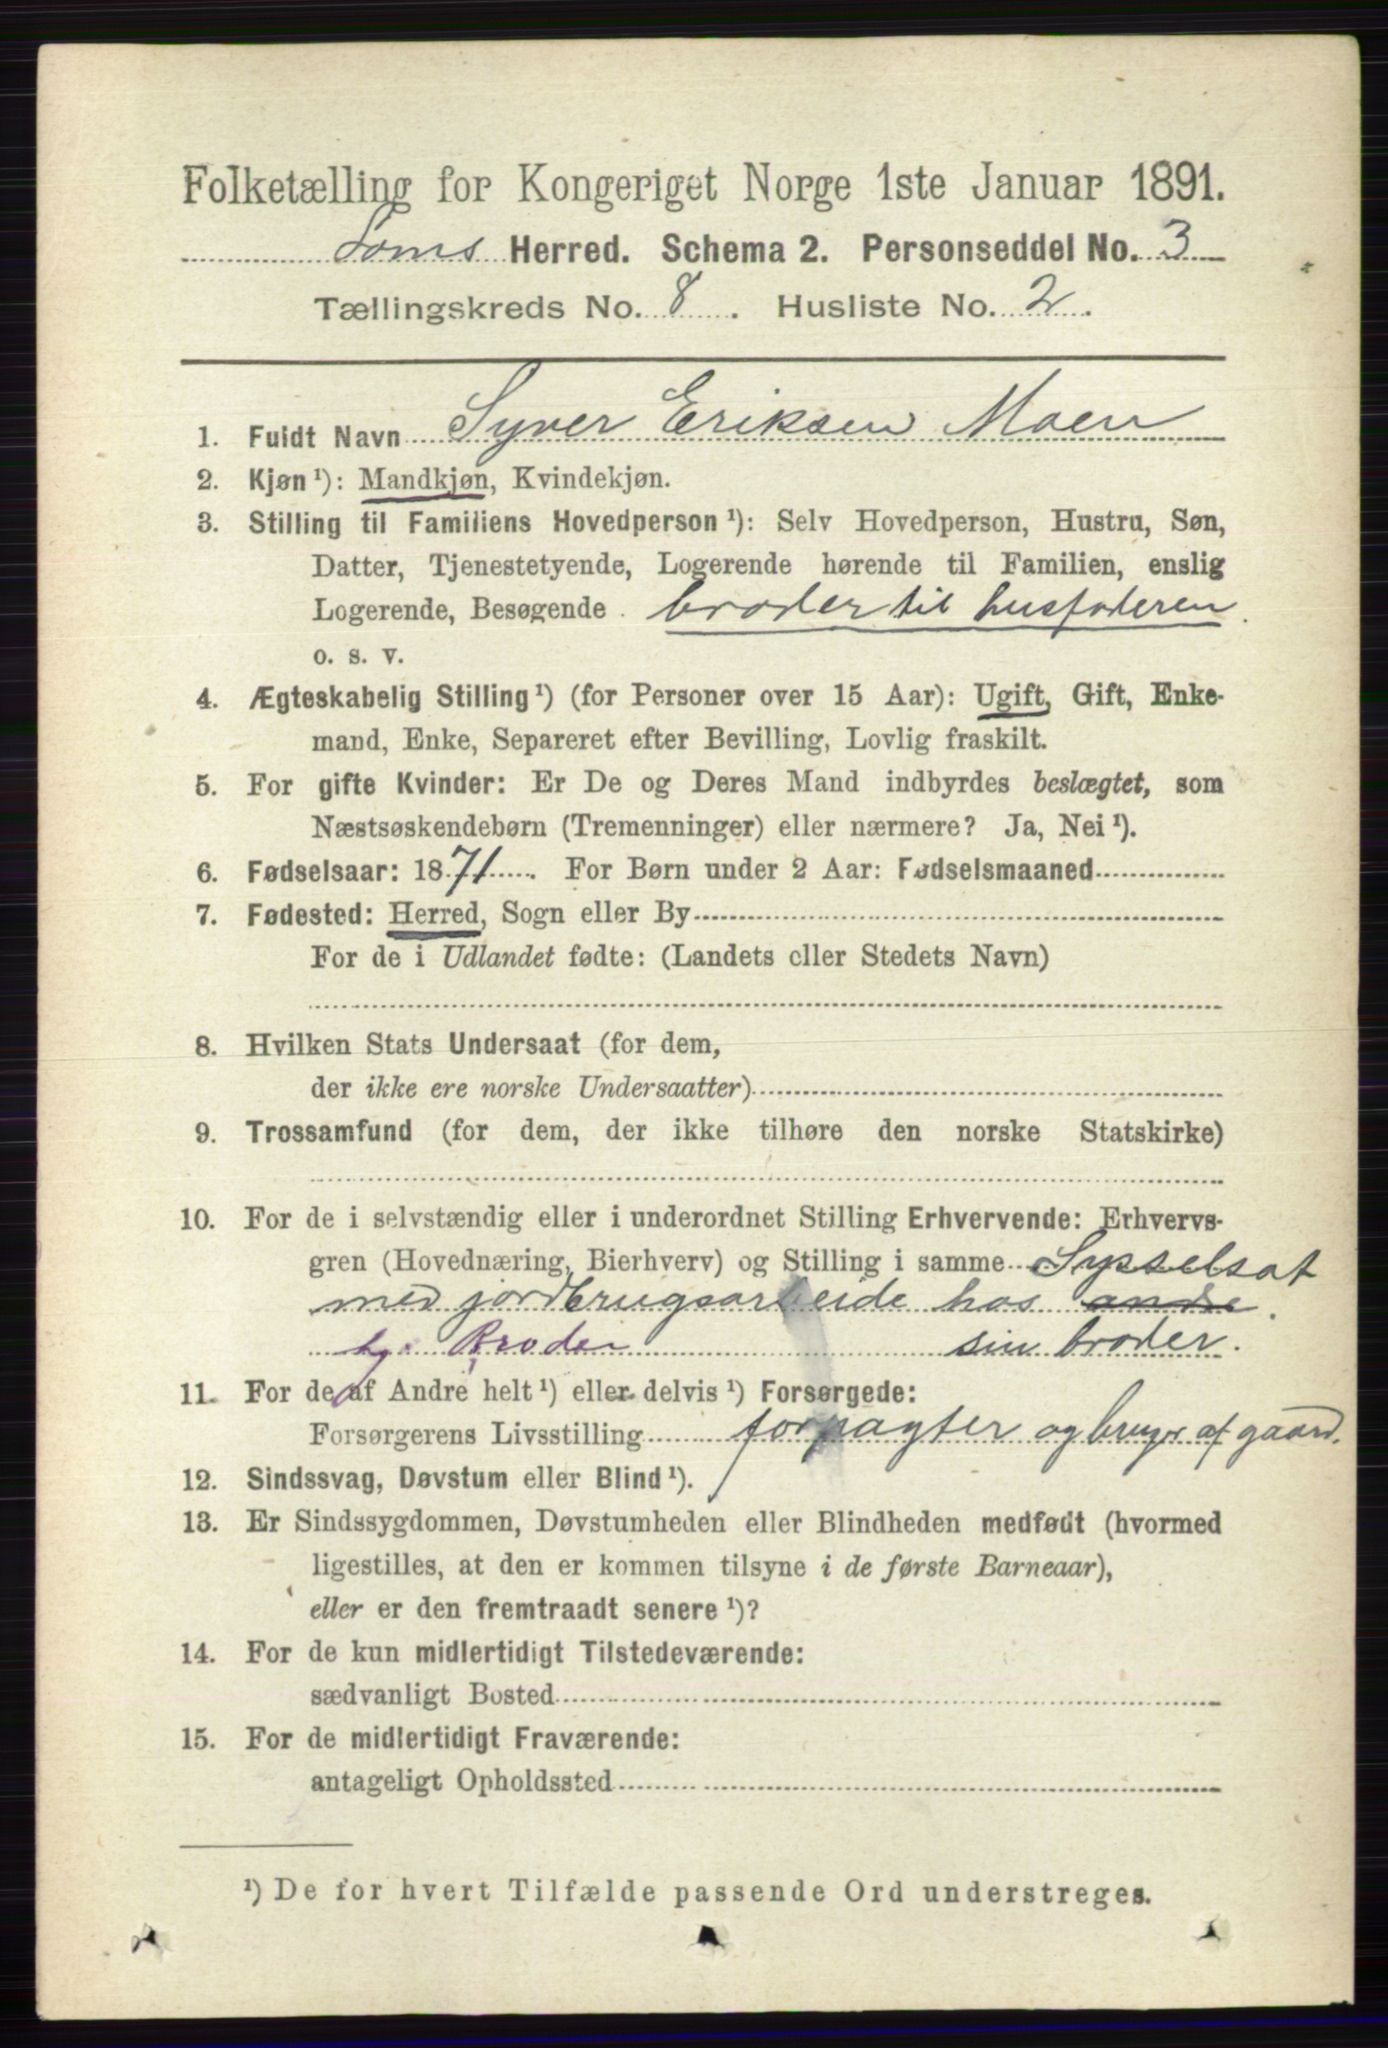 Folketælling for Kongeriget Norge 1ste Januar 1891.
Loms Herred. Schema 2. Personseddel No. 3
Tællingskreds No. 8. Husliste No. 2.
1. Fuldt Navn Syver Eriksen Moen
2. Kjøn ¹): Mandkjøn, Kvindekjøn.
3. Stilling til Familiens Hovedperson ¹): Selv Hovedperson, Hustru, Søn,
Datter, Tjenestetyende, Logerende hørende til Familien, enslig
Logerende, Besøgende broder til husfaderen.
o. s. v.
4. Ægteskabelig Stilling ¹) (for Personer over 15 Aar): Ugift, Gift, Enke-
mand, Enke, Separeret efter Bevilling, Lovlig fraskilt.
5. For gifte Kvinder: Er De og Deres Mand indbyrdes beslægtet, som
Næstsøskendebørn (Tremenninger) eller nærmere? Ja, Nei ¹).
6. Fødselsaar: 1871. For Børn under 2 Aar: Fødselsmaaned
7. Fødested: Herred, Sogn eller By
For de i Udlandet fødte: (Landets eller Stedets Navn)
8. Hvilken Stats Undersaat (for dem,
der ikke ere norske Undersaatter)
9. Trossamfund (for dem, der ikke tilhøre den norske Statskirke)
10. For de i selvstændig eller i underordnet Stilling Erhvervende: Erhvervs-
gren (Hovednæring, Bierhverv) og Stilling i samme Sysselsat
med jordbrugsarbeide hos andre.
Broder sin broder.
11. For de af Andre helt ¹) eller delvis ¹) Forsørgede:
Forsørgerens Livsstilling forpagter og bruger af gaard.
12. Sindssvag, Døvstum eller Blind ¹).
13. Er Sindssygdommen, Døvstumheden eller Blindheden medfødt (hvormed
ligestilles, at den er kommen tilsyne i de første Barneaar),
eller er den fremtraadt senere ¹)?
14. For de kun midlertidigt Tilstedeværende:
sædvanligt Bosted
15. For de midlertidigt Fraværende:
antageligt Opholdssted
¹) De for hvert Tilfælde passende Ord understreges.